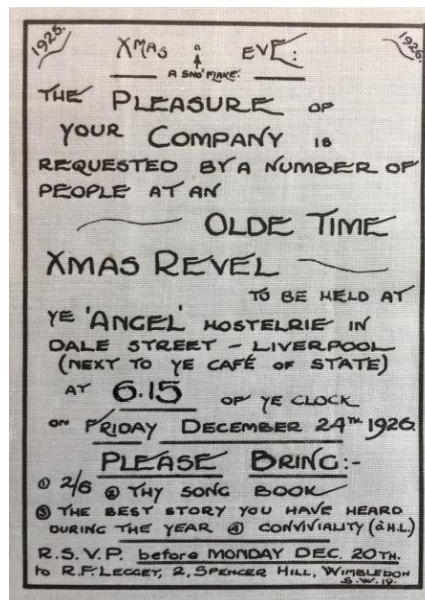 1926. XMAS & EVE: 1926.
A SNO' FLAKE.
THE PLEASURE OF
YOUR COMPANY IS
REQUESTED BY A NUMBER OF
PEOPLE AT AN
OLDE TIME
XMAS REVEL
TO BE HELD AT
YE 'ANGEL' HOSTELRIE IN
DALE STREET - LIVERPOOL
(NEXT TO YE CAFÉ OF STATE)
AT 6.15 OF YE CLOCK
ON FRIDAY DECEMBER 24TH 1926.
PLEASE BRING:-
① 2/6 ② THY SONG BOOK
③ THE BEST STORY YOU HAVE HEARD
DURING THE YEAR ④ CONVIVIALITY (à H.L)
R.S.V.P. before MONDAY DEC. 20TH.
to R.F. LEGGET, 2, SPENCER HILL, WIMBLEDON
S.W.19.